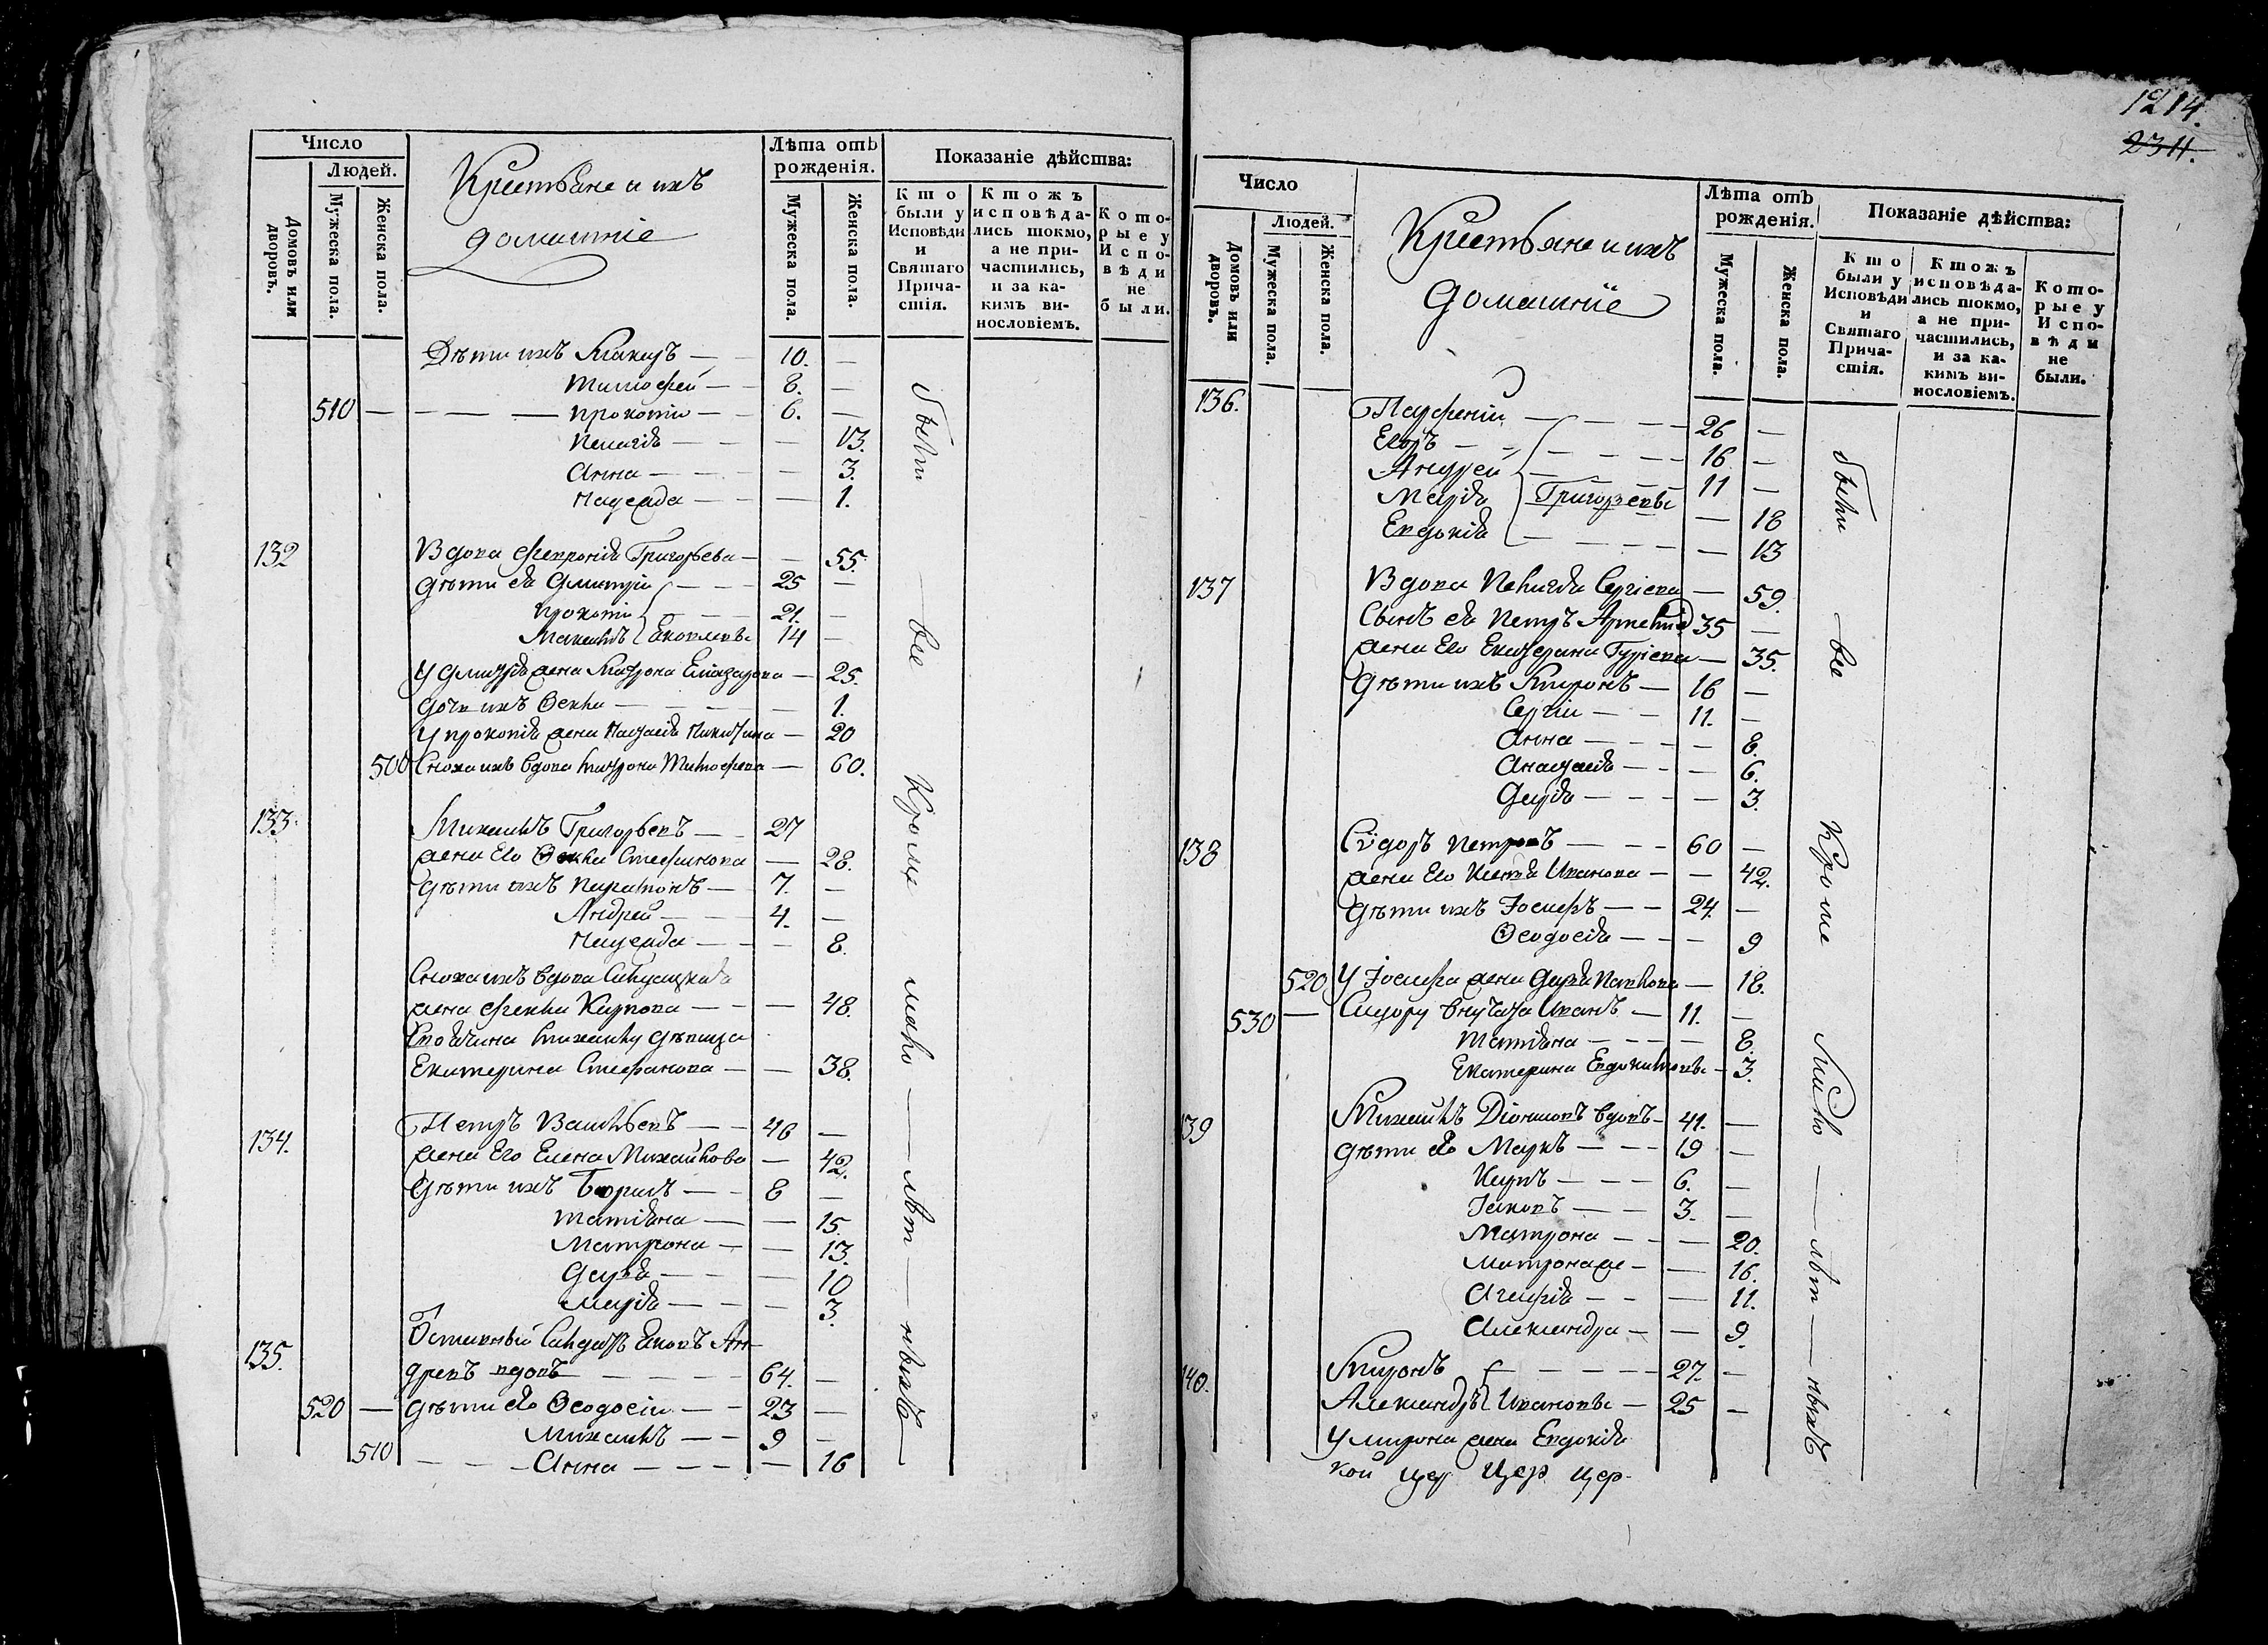 Число
Людей.
Домовъ или дворовъ.
Мужеска пола.
Женска пола.
Крестьяне и ихъ
домашніе
Лѣта отъ рожденія.
Мужеска пола.
Женска пола.
Показаніе дѣйства:
Кто были у Исповѣди и Святаго Причастія.
Ктожъ исповѣдались токмо, а не причастились, и за какимъ винословіемъ.
Которые у Исповѣди не были.
Дѣти ихъ Макаръ — 10. —
Тимофей — 8. —
510 — Прокопіи — 6. —
Пелагія — — 13.
Анна — — 3.
Надежда — — 1.
132 Вдова Февронія Григорьева — — 55.
дѣти ея Дмитріи — 25 —
Прокопи — 21. —
Максимъ Яковлевы 14 —
У Дмитрія жена Матрона Елиазарова — 25.
дочь ихъ Ѳекла — — 1.
У Прокопія жена Настасія Никитина — 20
500 Сноха ихъ вдова Матрона Тимофеева — 60.
133. Михаилъ Григорьевъ — 27
жена Его Ѳекла Стефанова — 28.
дѣти ихъ Парамонъ — 7. —
Андрей — 4. —
Надежда — — 8.
Сноха ихъ вдова Салдатская
жена Фекла Карпова — — 48.
Своячина Михаилу дѣвица
Екатерина Стефанова — — 38.
134. Петръ Васильевъ — 46 —
жена Его Елена Михайлова — 42.
Дѣти ихъ Борисъ — 8 —
Татіяна — — 15.
Матрона — — 13.
Дарья — — 10
Марія — — 3.
135. Отставный Салдатъ Яковъ Ан-
дреевъ вдовъ — 64. —
520 — дѣти его Ѳеодосіи — 23 —
Михаилъ — 9 —
510 — Анна — — 16
были — все — Кроме — мало — лѣт — ныхъ
1214.
2311.
Число
Людей.
Домовъ или дворовъ.
Мужеска пола.
Женска пола.
Крестьяне и ихъ
домашніе
Лѣта отъ рожденія.
Мужеска пола.
Женска пола.
Показаніе дѣйства:
Кто были у Исповѣди и Святаго Причастія.
Ктожъ исповѣдались токмо, а не причастились, и за какимъ винословіемъ.
Которые у Исповѣди не были.
136. Парфеніи — 26 —
Егоръ — 16 —
Андрей — 11 —
Марія Григорьевы — 18
Евдокія — — 13
137 Вдова Пелагія Сергіева — 59.
Сынъ ея Петръ 35 —
жена Его Екатерина Гурієва — 35.
Дѣти ихъ Миронъ — 16 —
Сергіи — 11. —
Анна — — 8.
Анастасія — — 6.
Дарія — — 3.
138 Сидоръ Петровъ — 60 —
жена Его Ксенія Иванова — — 42.
Дѣти ихъ Іосифъ — 24. —
Ѳеодосія — — 9
520 У Іосифа жена Дарья Павлова — 18.
530 — Сидору внучата Иванъ — 11. —
Татіяна — — 8.
Екатерина Евдокимовы — 3.
139 Михаилъ вдовъ — 41. —
дѣти его Маркъ — 19 —
Карпъ — 6. —
Іаковъ — 3. —
Матрона — — 20.
Матрона же — — 16.
Агафія — — 11.
Александра — — 9.
140. Миронъ — 27. —
Александръ Ивановы — 25 —
У Мирона жена Евдокія
кой цер цер цер
были — все — Кроме — мало — лѣт — ныхъ